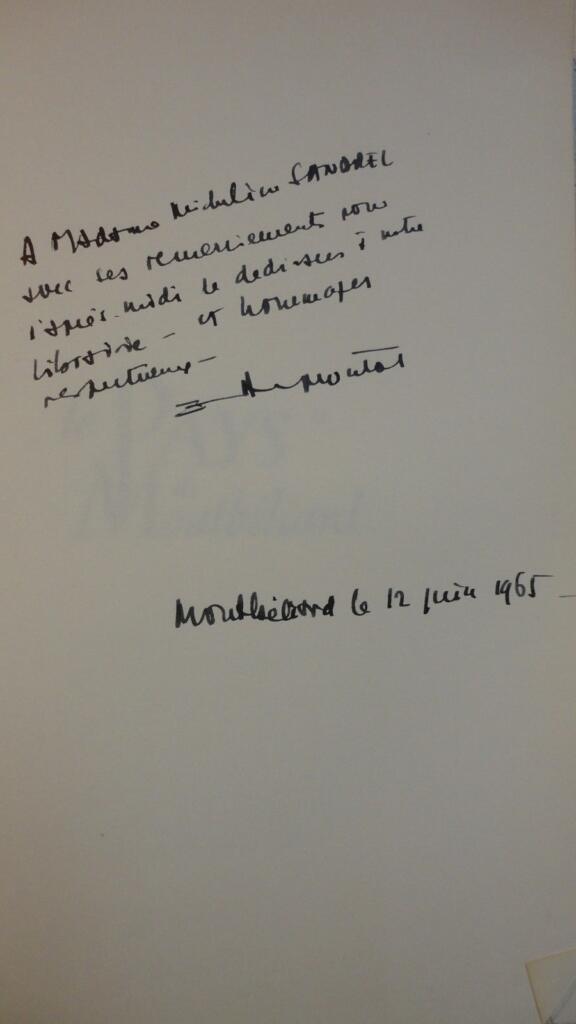 A Madame Micheline SANDREL
avec ses remerciements pour
l'après-midi de dédicaces à notre
librairie - et hommages
respectueux -
le PAYS
de Montbéliard
Montbéliard le 12 juin 1965